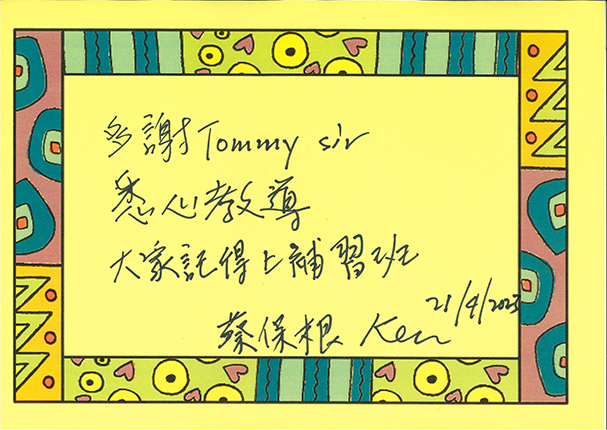 多謝Tommy sir
悉心教導
大家記得上補習班
21/4/2023
蔡保根 Ken